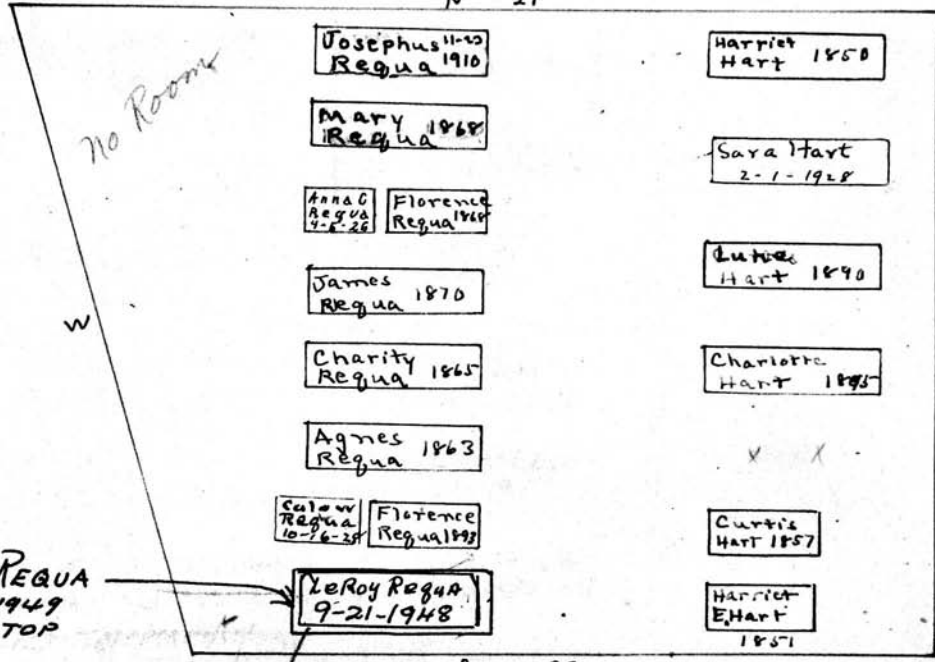 No Room
W
Josephus 11-23
Requa 1910
Mary
Requa 1868
Anna C
Requa
Florence
Requa 1868
James
Requa 1870
Charity
Requa 1865
Agnes
Requa 1863
Requa
Florence
Requa 1893
LeRoy Requa
9-21-1948
REQUA
1949
TOP
Harriet
Hart 1850
Sara Hart
2-1-1928
Hart 1890
Charlotte
Hart
X X
Curtis
Hart 1857
Harriet
E. Hart
1851